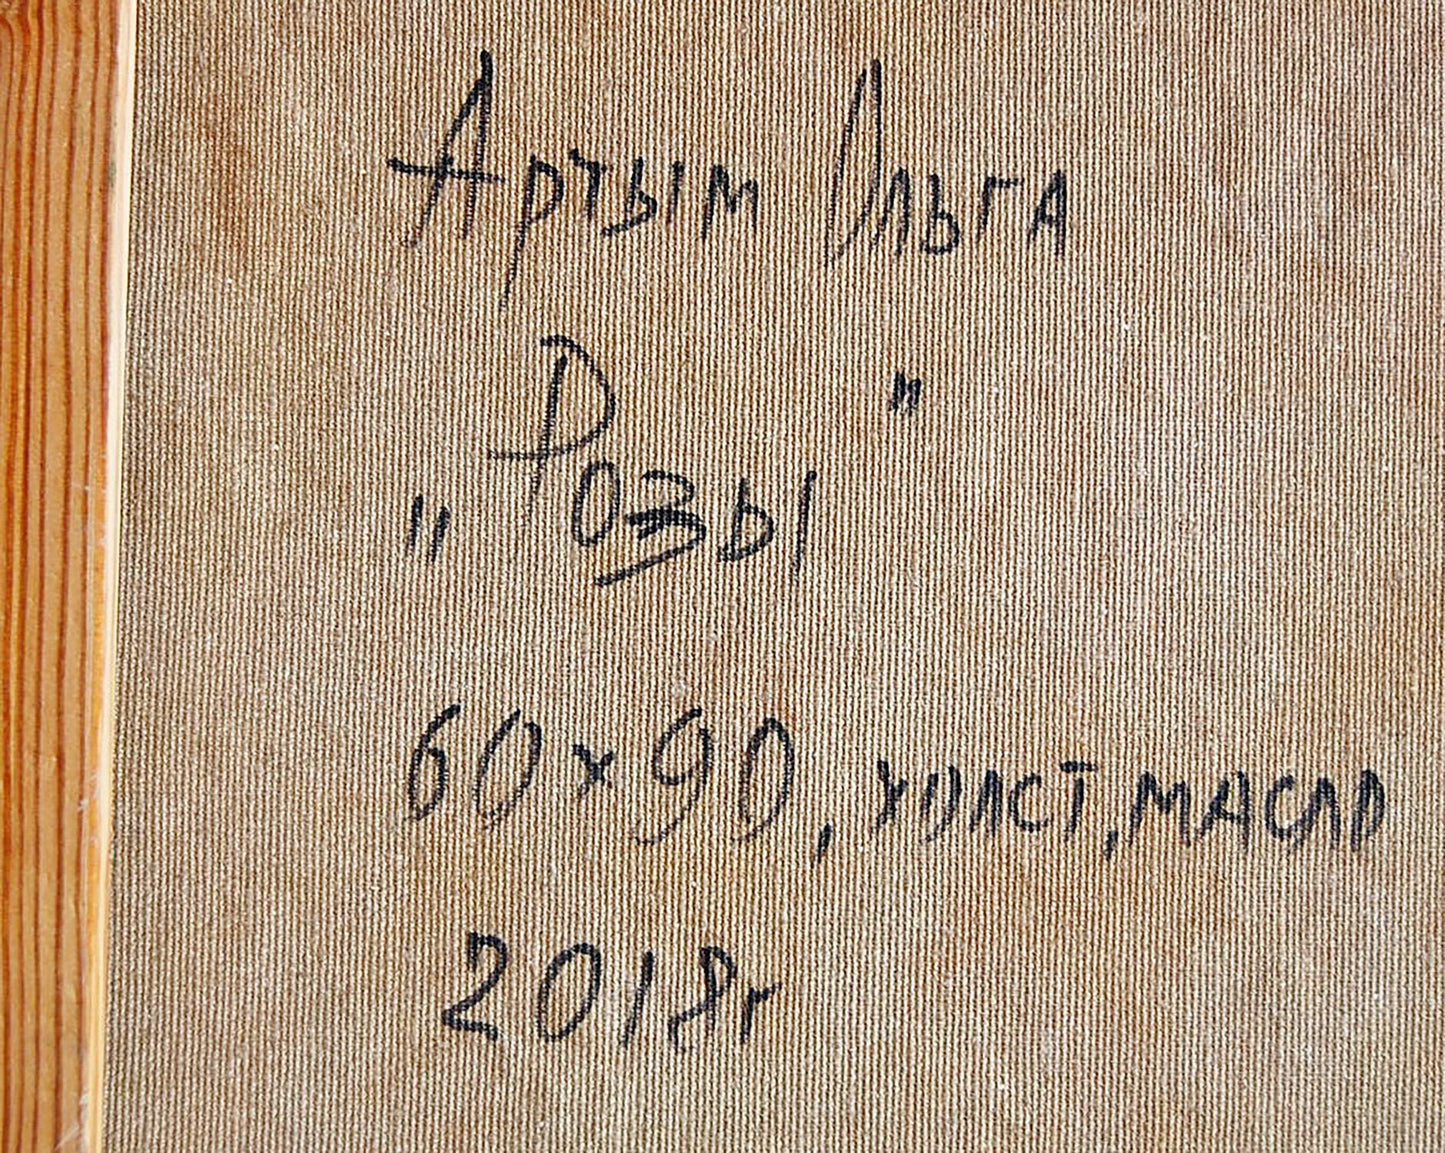 Артым Ольга
„Розы"
60×90, холст, масло
2018г